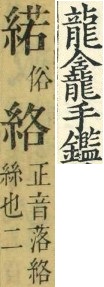 龍龕手鑑
俗絡正音落絡
絲也二